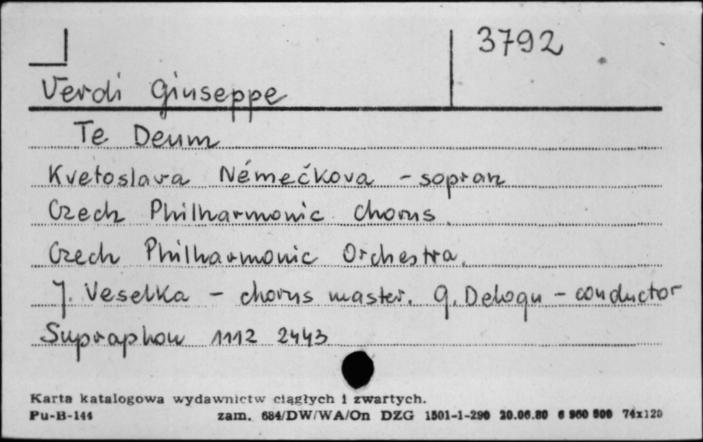 3792
Verdi Giuseppe
Te Deum
Kvetoslava Némečkova - sopran
Czech Philharmonic chorus.
Czech Philharmonic Orchestra.
J. Veselka - chorus master. G. Delogu - conductor
Supraphon 1112 2443
Karta katalogowa wydawnictw ciągłych i zwartych.
Pu-B-144 zam. 684/DW/WA/On DZG 1501-1-290 20.06.80 6 960 800 74x120